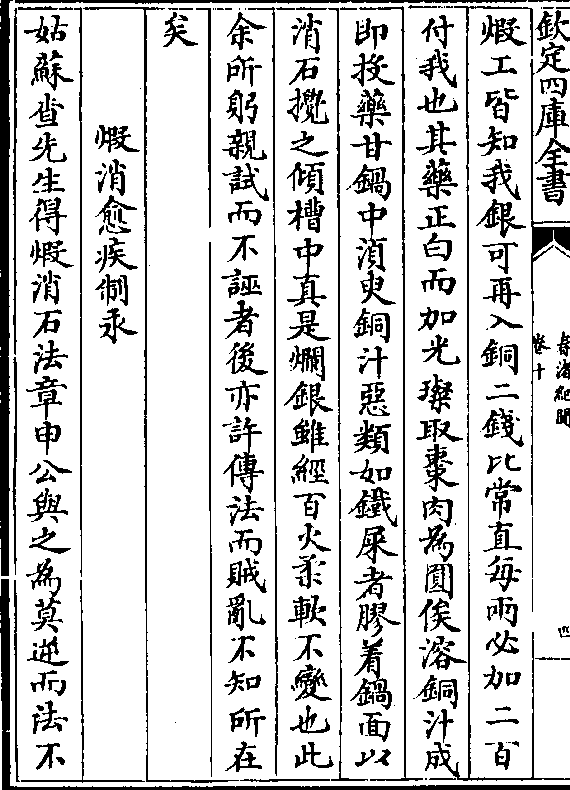 欽定四庫全書
春渚紀聞
卷十
四
煅工皆知我銀可再入銅二錢比常直每兩必加二百
付我也其藥正白而加光璨取棗肉為圓俟溶銅汁成
即投藥甘鍋中湏臾銅汁惡類如鐵屎者膠着鍋面以
消石攪之傾槽中真是爛銀雖經百火柔軟不變也此
余所躬親試而不誣者後亦許傳法而賊亂不知所在
矣
煅消愈疾制汞
姑蘇查先生得煅消石法章申公與之為莫逆而法不